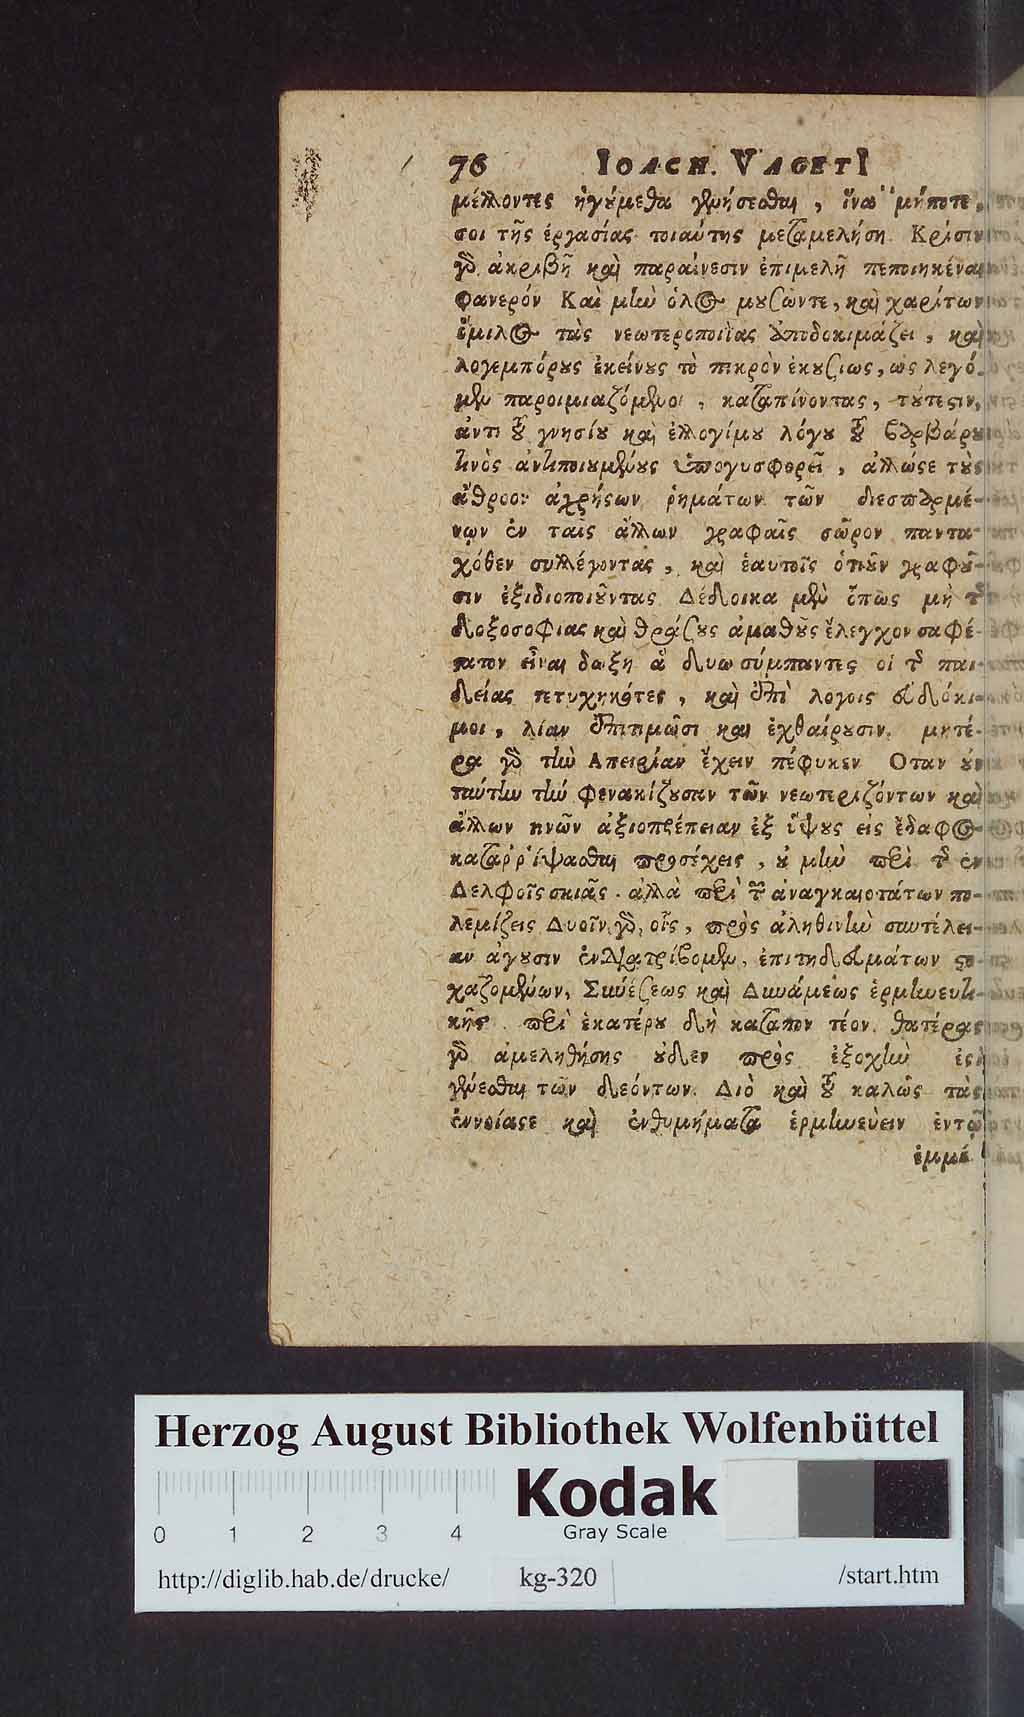 76 IOACH. VAGETI
μέλλοντες ἡγούμεθα γενήσεσθαι, ἵνα μήποτε
σοι τῆς ἐργασίας τοιαύτης μεταμελήση Κρίσιν
γὸ ἀκριβῆ καὶ παραίνεσιν ἐπιμελῆ πεποιηκέναι
φανερόν Καὶ μὴν ὅλος μουσῶντε, καὶ χαρίτων
ὅμιλος τὰς νεωτεροποιΐας ἀποδοκιμάζει, καὶ
λογεμπόρους ἐκείνους τὸ πικρὸν ἑκουσίως, ὡς λεγό-
μεν παροιμιαζόμενοι, καταπίνοντας, τούτεστιν,
ἀντι τοῦ γνησίου καὶ ἐλλογίμου λόγου τοῦ βαρβάρου
τινὸς ἀντιποιουμένους ὑπογυσφορεῖ, ἄλλωστε τοὺς
ἄθροον ἀχρήστων ῥημάτων τῶν διεσπαρμέ-
νων ἐν ταῖς ἄλλων γραφαῖς σῶρον παντα-
χόθεν συλλέγοντας, καὶ ἑαυτοῖς ὁτιοῦν γραφοῦ-
σιν ἐξιδιοποιοῦντας Δέδοικα μὲν ὅπως μὴ τῆς
δοξοσοφιας καὶ θράσους ἀμαθοῦς ἔλεγχον σαφέ-
στατον εἶναι δοξη ἃ δυω σύμπαντες οἱ τῆς παι-
δείας τετυχηκότες, καὶ ἐπὶ λογοις εὐδόκι-
μοι, λίαν ἐπιτιμῶσι και ἐχθαίρουσιν. μητέ-
ρα γὸ τὴν Απειρίαν ἔχειν πέφυκεν Οταν οὖν
ταύτην τὴν φενακίζουσαν τῶν νεωτεριζόντων καὶ
ἄλλων τινῶν ἀξιοπρέπειαν ἐξ ὕψους εἰς ἔδαφος
καταῤῥίψασθαι προσέχεις, οὐ μὴν περὶ τῆς ἐν
Δελφοῖς σκιᾶς. ἀλλὰ περὶ τῶν ἀναγκαιοτάτων πο-
λεμίζεις Δυοῖν γὸ, οἷς, πρὸς ἀληθινὴν συντέλει-
αν ἄγουσιν ἐνδιατρίβομεν, ἐπιτηδευμάτων στο-
χαζομένων, Συνέσεως καὶ Δυνάμεως ἑρμηνευτι-
κῆς. περὶ ἑκατέρου δὴ καταπον τέον. θατέρας
γὸ ἀμεληθήσης οὐδεν πρὸς ἐξοχὴν ἐστὶ
γενέσθαι τῶν δεόντων. Διὸ καὶ τοῦ καλῶς τὰς
ἐννοίαςε καὶ ἐνθυμήματα ἑρμηνεύειν ἐντῷ
ἐμμέ-
Herzog August Bibliothek Wolfenbüttel
Kodak
Gray Scale
0 1 2 3 4
http://diglib.hab.de/drucke/ kg-320 /start.htm